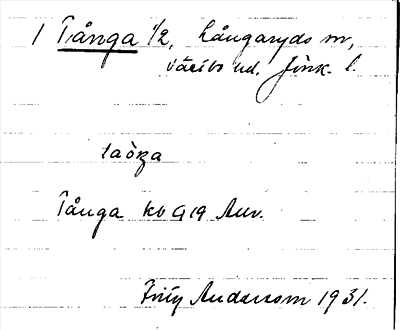 1 Tånga 1/2, Långaryds sn,
Västbo hd. Jönk. l.
taŋa
Tånga kb G 19 Auv.
Fritiy Andersson 1931.